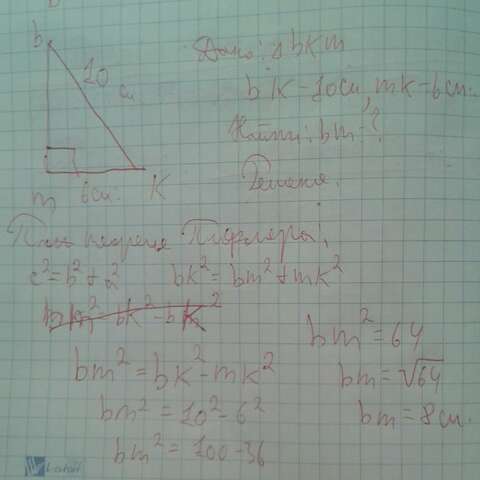 b
10 см
m 6см. K
Дано: △ bkm
bk-10см, mk-6см.
Найти: bm-?
Решение.
Пифагора,
c²=b²+a² bk²=bm²+mk²
bm²=bk²-mk²
bm²=10²-6²
bm²=100-36
bm²=64
bm=√64
bm=8см.